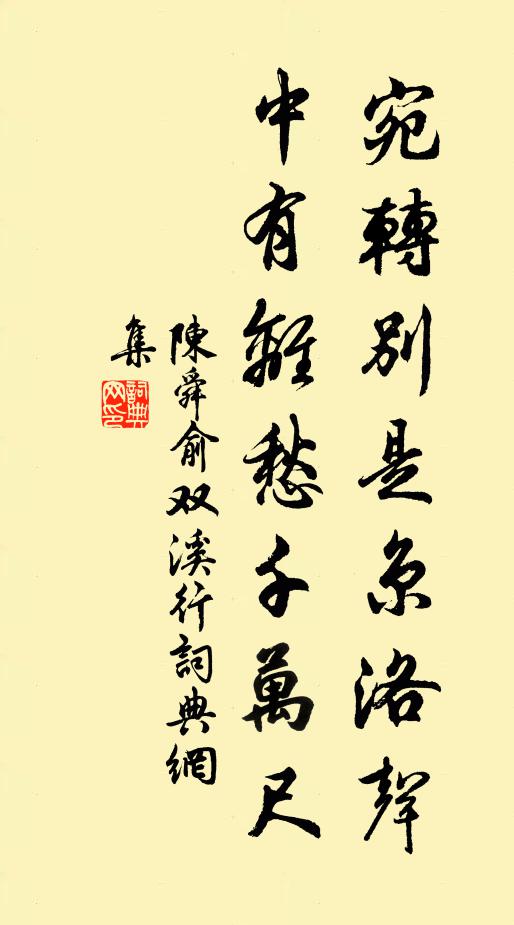 宛轉別是京洛聲
中有離愁千萬尺
陳舜俞双溪行詞典網
集
詞典網印